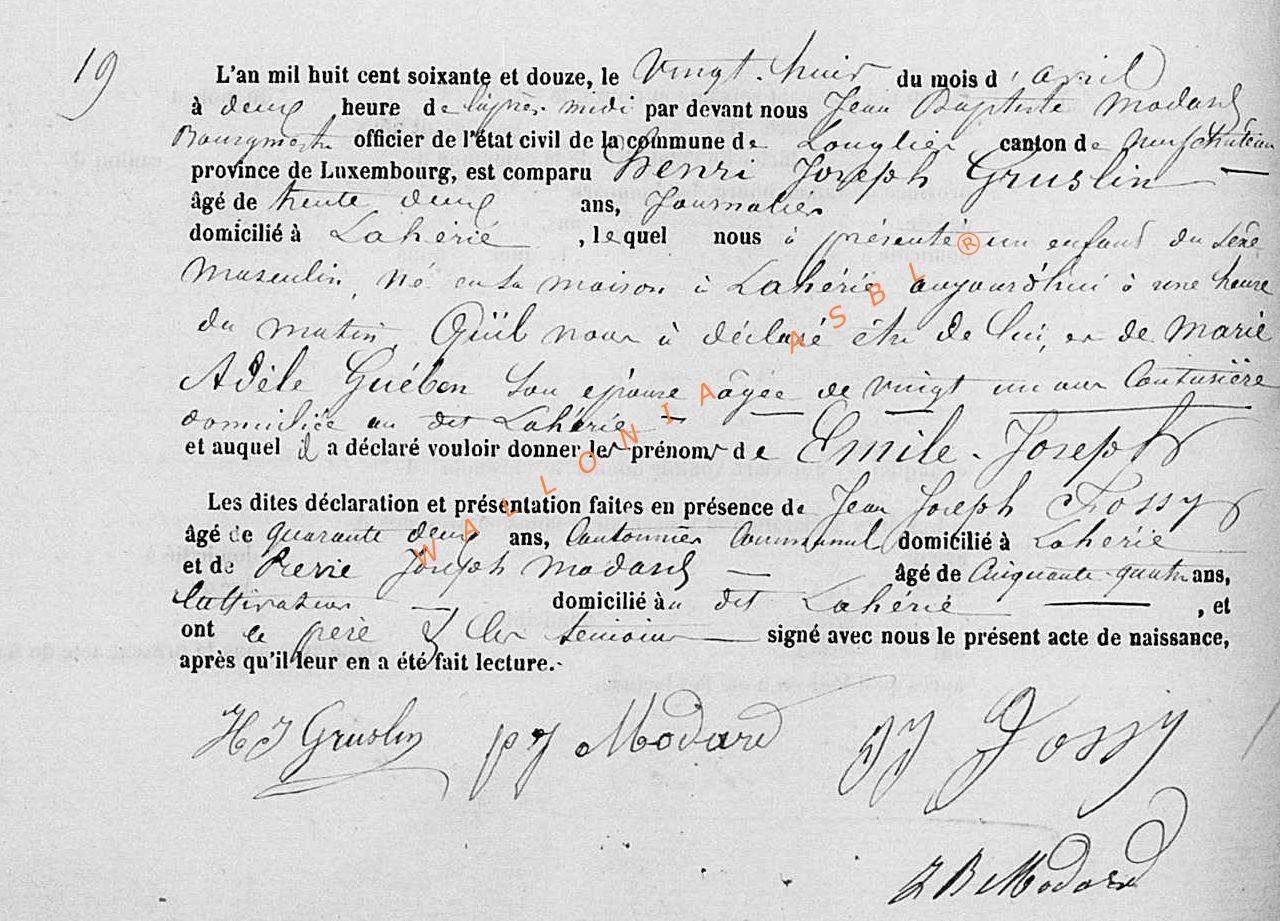 19
L'an mil huit cent soixante et douze, le vingt-huit du mois d'avril
à deux heure de l'après-midi par devant nous Jean Baptiste Modard
Bourgmestre officier de l'état civil de la commune de Longlier, canton de Neufchâteau
province de Luxembourg, est comparu Henri Joseph Gruslin —
âgé de trente deux ans, Journalier
domicilié à Lahérie, lequel nous à présenté un enfant du sexe
masculin, né en sa maison à Lahérie aujourd'hui à une heure
du matin, Qu'il nous à déclaré être de lui, et de Marie
Adèle Guében son épouse âgée de vingt un ans Couturière
domiciliée au dit Lahérie —
et auquel il a déclaré vouloir donner les prénoms de Emile-Joseph
Les dites déclaration et présentation faites en présence de Jean Joseph Fossy
âgé de quarante deux ans, Cantonnier Communal domicilié à Lahérie
et de Pierre Joseph Modard — âgé de Cinquante-quatre ans,
Cultivateur — domicilié au dit Lahérie —, et
ont le père & les témoins — signé avec nous le présent acte de naissance,
après qu'il leur en a été fait lecture.-
H J Gruslin pJ Modard JJ Fossy
J B Modard
WALLONIA ASBL ®